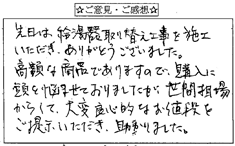 ☆ご意見・ご感想☆
先日は、給湯器取り替え工事を施工
いただき、ありがとうございました。
高額な商品でありますので、購入に
頭を悩ませておりましたが世間相場
からして、大変良心的なお値段を
ご提示いただき、助かりました。